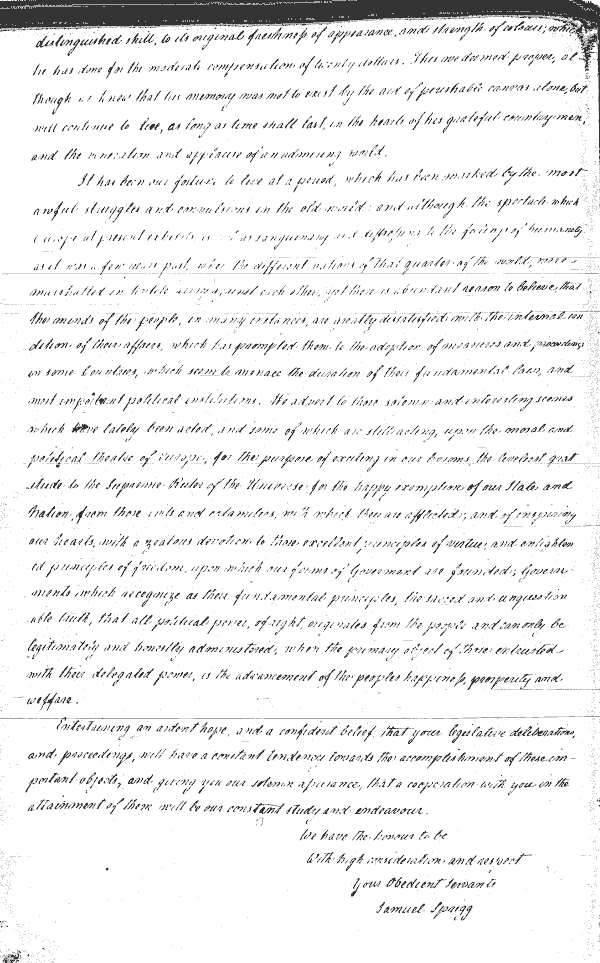 distinguished skill, to its original freshness of appearance, and strength of colour; which
he has done for the moderate compensation of twenty dollars. This we deemed proper, al-
though we knew that his memory was not to exist by the aid of perishable canvas alone, but
will continue to live, as long as time shall last, in the hearts of his grateful countrymen,
and the veneration and applause of an admiring world.
It has been our fortune to live at a period, which has been marked by the most
awful struggles and convulsions in the old world: and although the spectacle which
Europe at present exhibits is not as sanguinary and distressing to the feelings of humanity
as it was a few years past, when the different nations of that quarter of the world, were
marshalled in hostile array against each other, yet there is abundant reason to believe, that
the minds of the people, in many instances, are greatly dissatisfied with the internal con
dition of their affairs, which has prompted them to the adoption of measures and proceedings
in some Countries, which seem to menace the duration of their fundamental laws, and
most important political institutions. We advert to those solemn and interesting scenes
which have lately been acted, and some of which are still acting, upon the moral and
political theatre of Europe, for the purpose of exciting in our bosoms, the liveliest grat
itude to the Supreme Ruler of the Universe for the happy exemption of our State and
Nation, from those evils and calamities, with which they are afflicted; and of inspiring
our hearts, with a zealous devotion to those excellent principles of virtue, and enlighten
ed principles of freedom, upon which our forms of Government are founded; Govern-
ments which recognize as their fundamental principles, the sacred and unquestion
able truth, that all political power, of right, originates from the people and can only be
legitimately and honestly administered, when the primary object of those entrusted
with their delegated power, is the advancement of the peoples happiness, prosperity and
welfare.
Entertaining an ardent hope, and a confident belief, that your legislative deliberations,
and proceedings, will have a constant tendency towards the accomplishment of these im-
portant objects, and giving you our solemn assurance, that a cooperation with you in the
attainment of them will be our constant study and endeavour.
We have the honour to be
With high consideration and respect
Your Obedient Servants
Samuel Sprigg